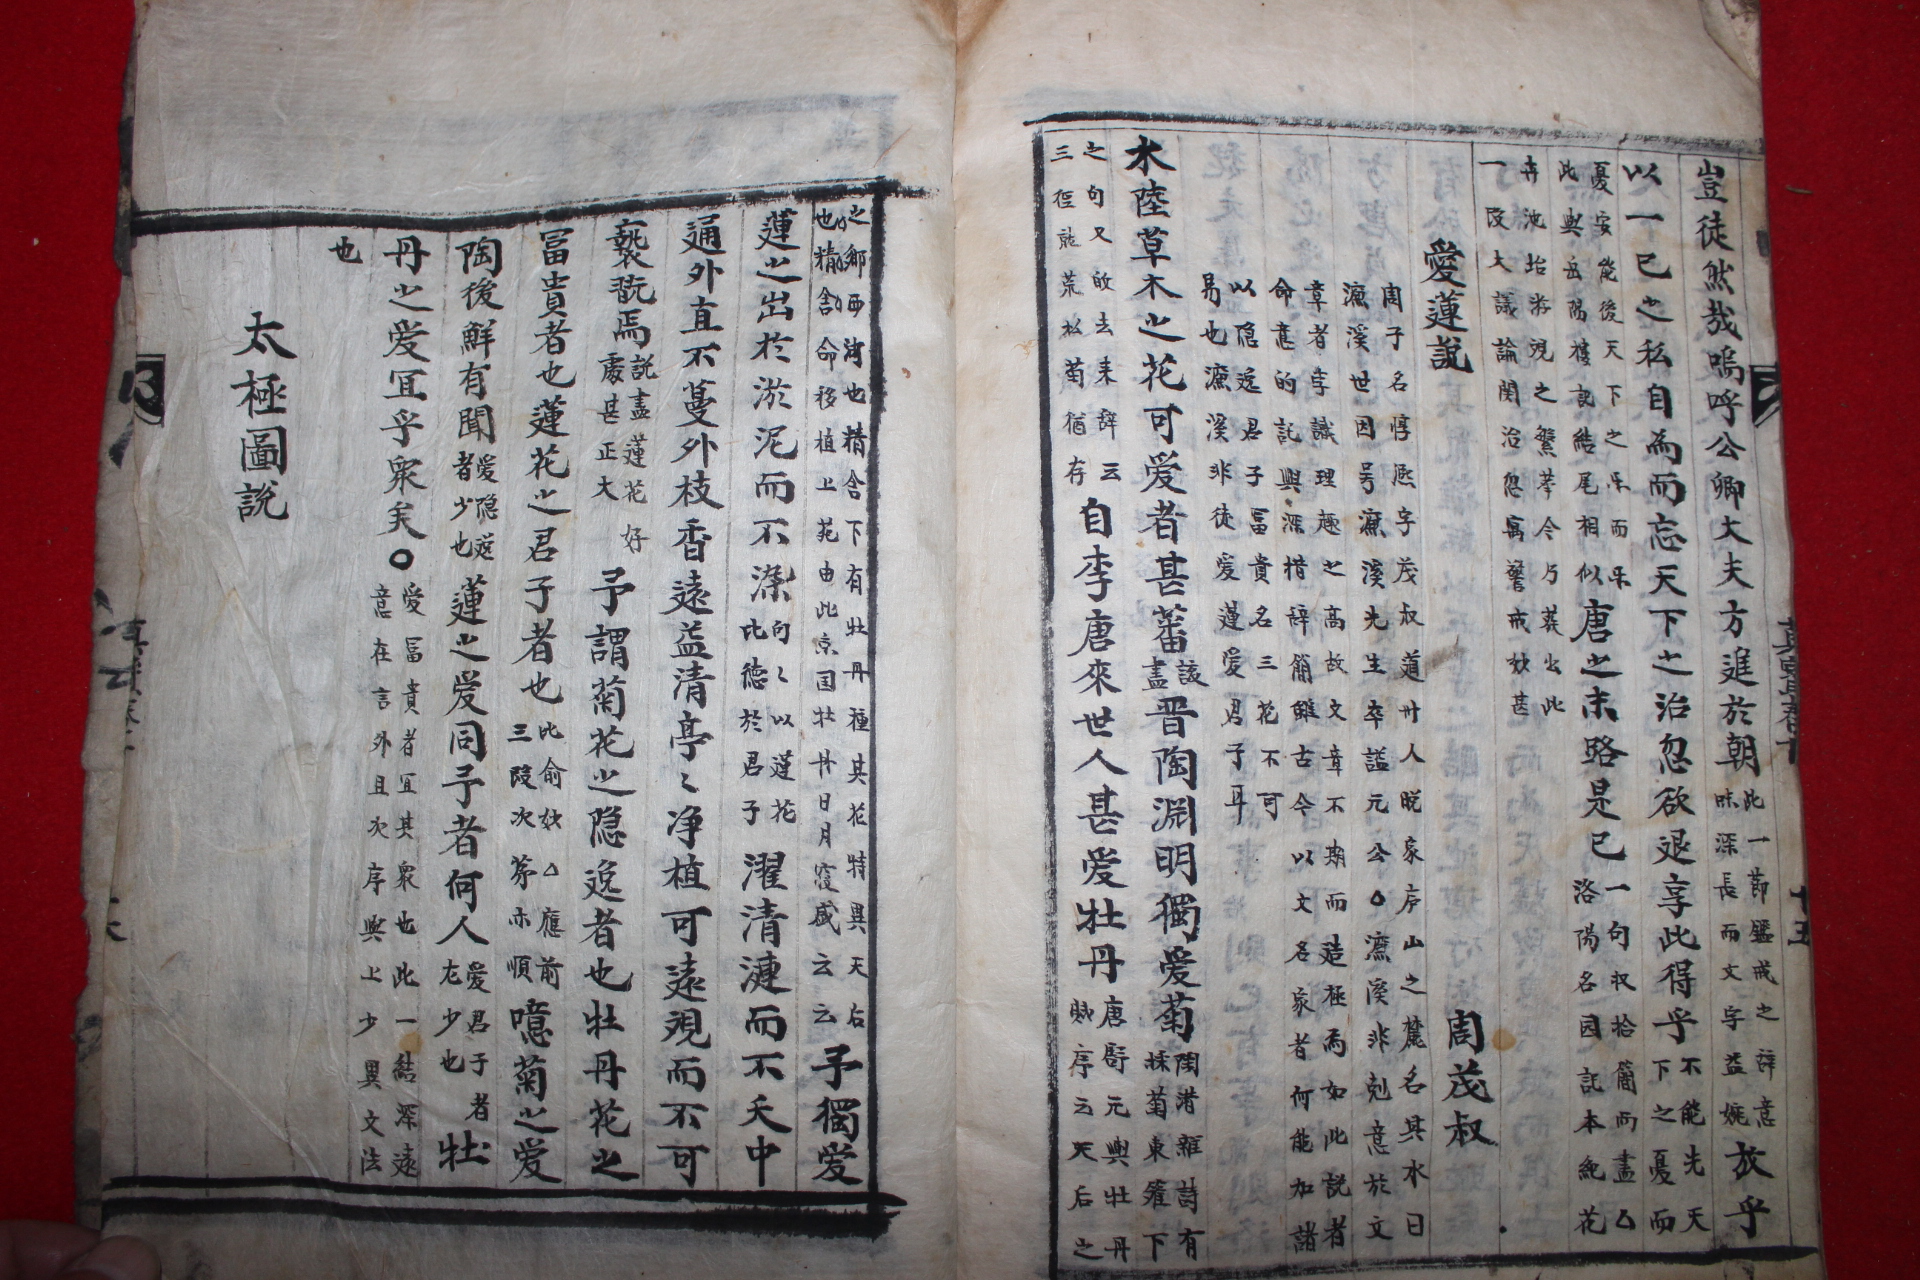 豈徒然哉嗚呼公卿大夫方進於朝此一節鑑戒之辞意味深長而文字益婉放乎
以一已之私自為而忘天下之治忽欲退享此得乎不能先天下之憂而
憂安能後天下之乐而乐此與岳陽樓記結尾相似唐之末路是已一句収拾簡而盡△洛陽名园記本純花
卉池㙵游現之繁華今乃葬出此一段大議論関治忽寓警戒妙甚
愛蓮説
周茂叔
周子名惇熙字茂叔道州人晚家庐山之麓名其水曰濂溪世因号濂溪先生卒諡元公○濂溪非剋意於文
章者李識理趣之高故文章不期而造極焉如此説者命意的託興深措辞簡雖古今以文名家者何能加諸
以隐逸君子冨貴名三花不可易也濂溪非徒爱蓮爱君子耳
水陸草木之花可爱者甚蕃該盡晋陶渊明獨爱菊閑淆雜詩有採菊東籬下
之句又敀去来辞云三徑就荒松菊猶存自李唐來世人甚爱牡丹唐舒元輿牡丹賦序云天后之
之鄉西河也精舍下有牡丹種其花特異天后也精舍命移植上苑由此京国牡丹日月寝盛云云予獨爱
蓮之出於淤泥而不染句〻以蓮花比德於君子濯清漣而不夭中
通外直不蔓外枝香遠益清亭〻净植可遠現而不可
褻翫焉説盡蓮花好處甚正大予謂菊花之隐逸者也牡丹花之
冨貴者也蓮花之君子者也比俞妙△應前三段次苐亦順噫菊之爱
陶後鮮有聞爱隐逸者少也蓮之爱同予者何人爱君子者尤少也牡
丹之爱冝乎衆矣○爱冨貴者冝其衆也此一結深遠意在言外且次序與上少異文法
也
太極圖説